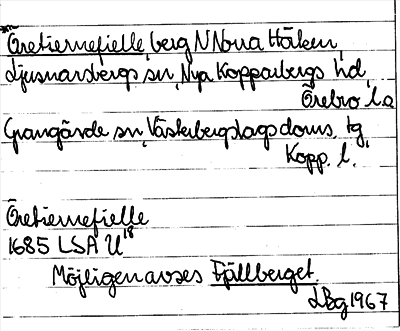 Öretiernefielle, berg N Norra Hörken,
Ljusnarsbergs sn, Nya Kopparbergs hd,
Örebro l. o
Grangärde sn, Västerbergslags doms. tg,
Kopp. l.
Öretiernefielle
1685 LSA U 18
Möjligen avses Fjällberget.
LBg 1967